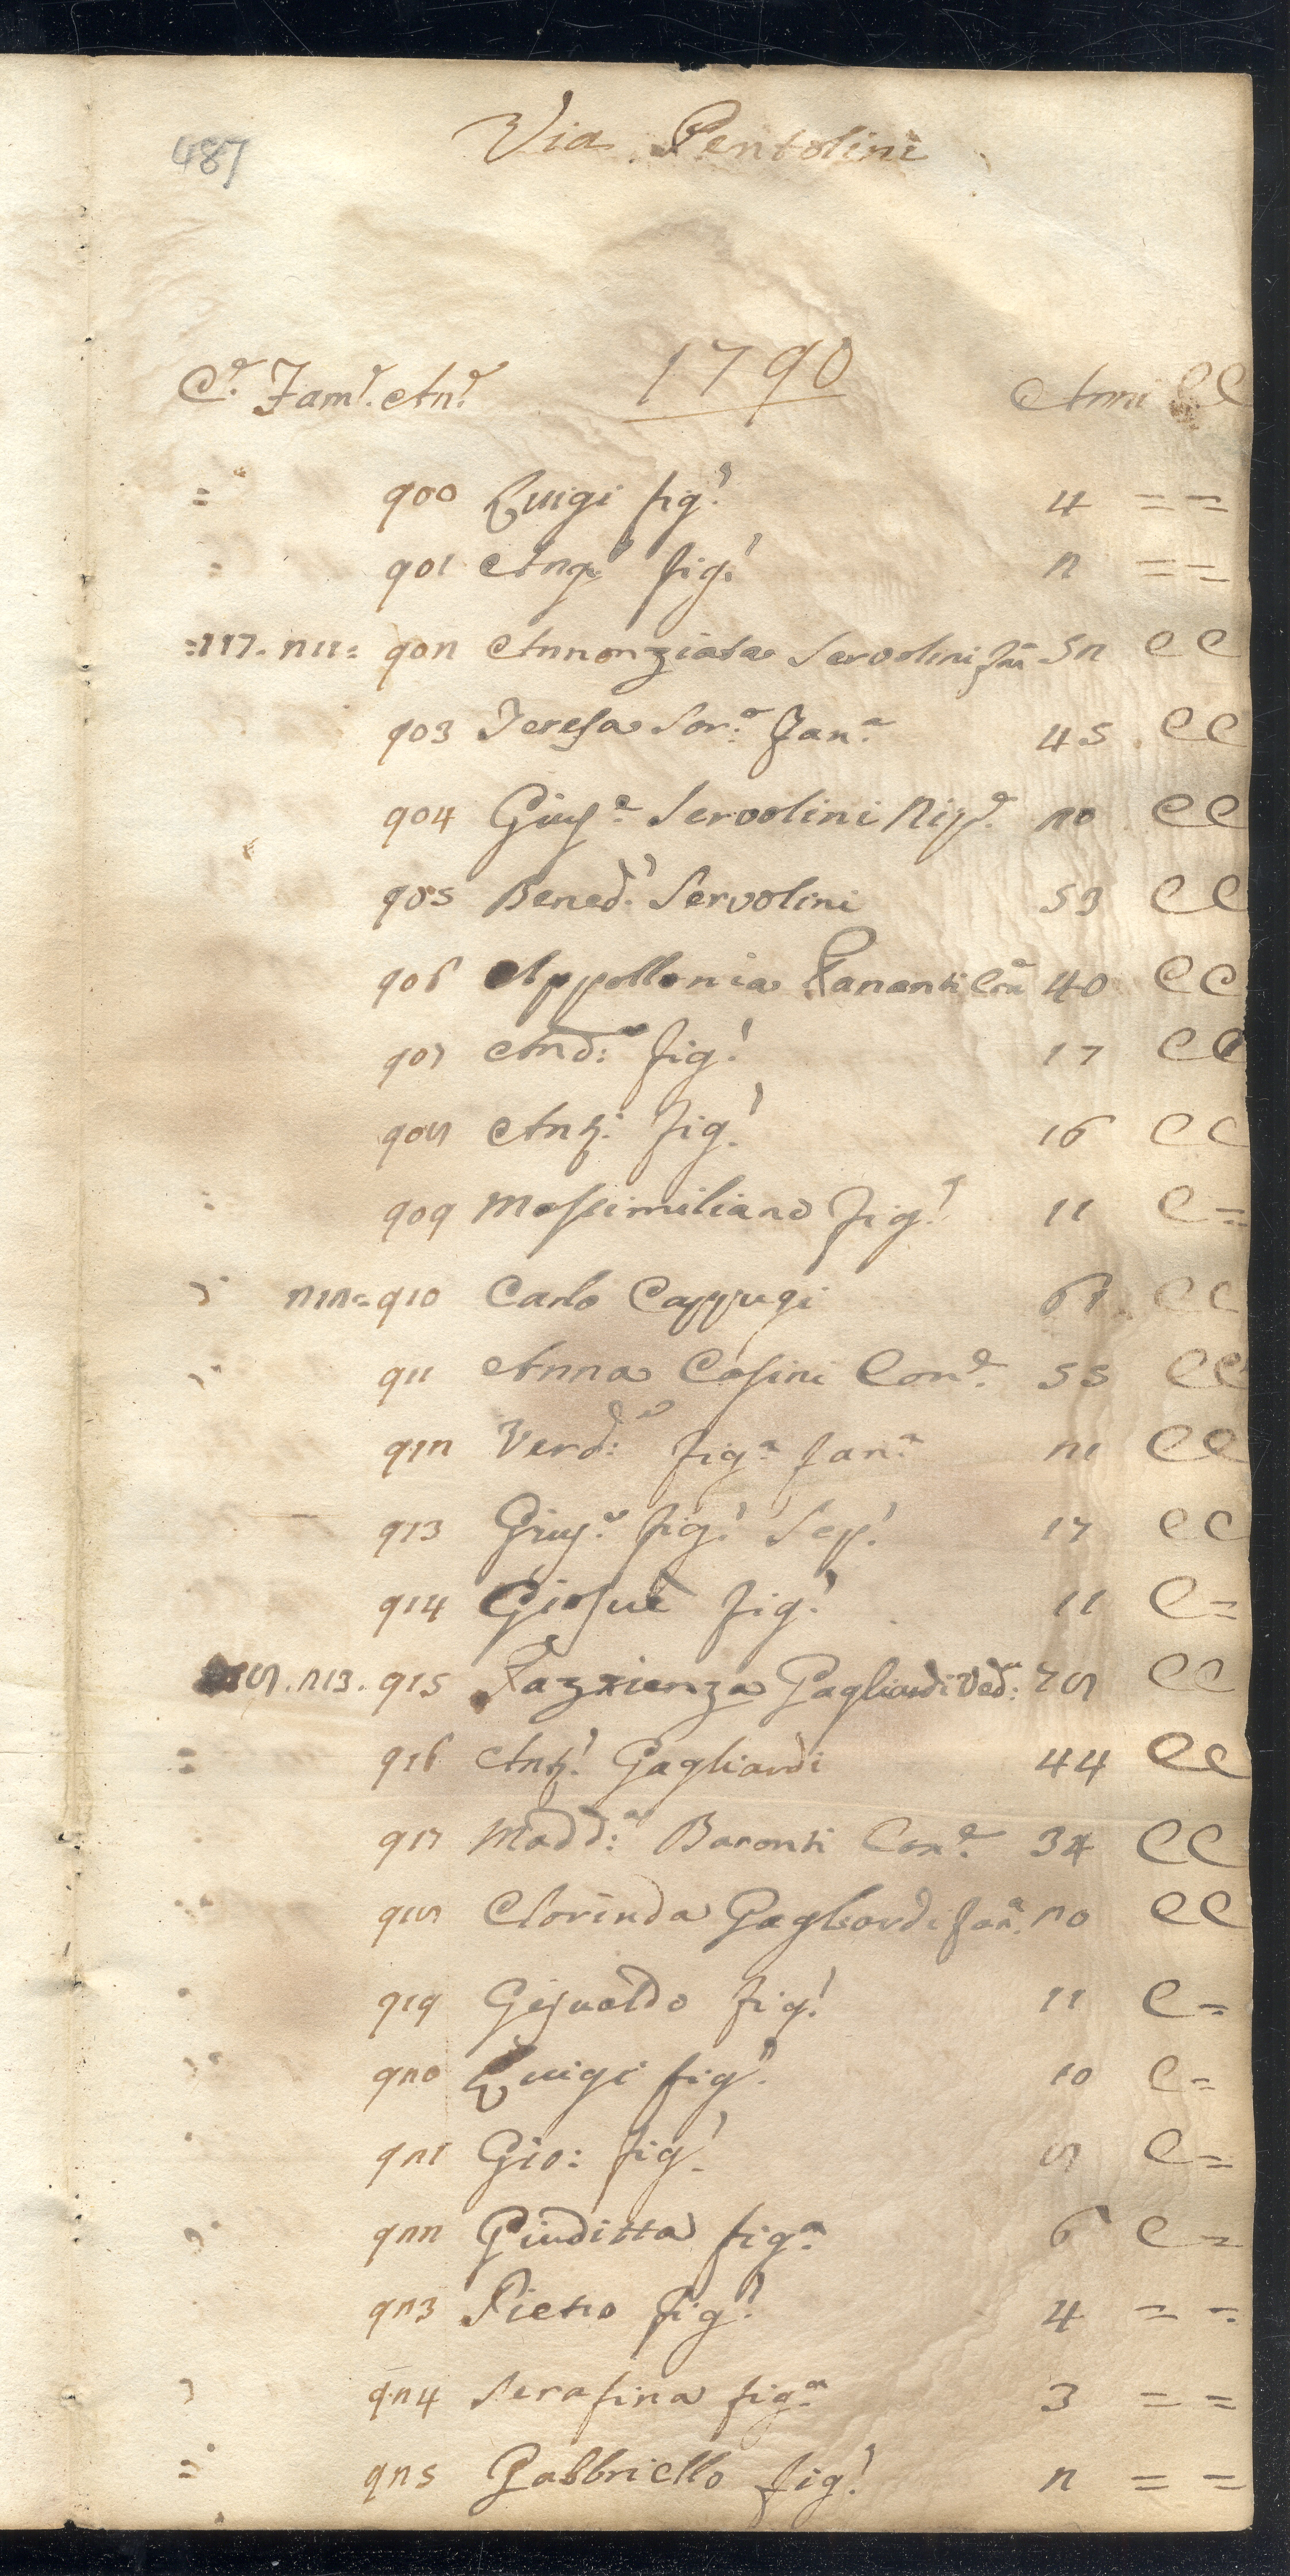 487
Via Pentolini
1790
Cᵉ. Famᵉ. Anᵉ. Anni CC
= 900 Luigi figº. 4 = =
901 Angº. figº. 2 = =
=117. 211= 902 Annonziata Servolini fan 52 CC
903 Teresa Sorª. Fanª. 45 CC
904 Giusᵉ. Servolini Nipᵉ. 20 CC
905 Benedº. Servolini 53 CC
906 Appollonia Fananti Con 40 CC
907 Andª: figº. 17 CC
908 Antº. figº. 16 CC
909 Massimiliano figº. 11 C=
212= 910 Carlo Cappugi CC
911 Anna Casini Conᵉ. 55 CC
912 Verdª: figª. fanª. 21 CC
913 Giusᵉ. figº. Sepº. 17 CC
914 Giosuè figº. 11 C=
213. 915 Pazzienza Gagliardi Vedª: 78 CC
= 916 Antº. Gagliardi 44 CC
917 Maddª: Baronti Conᵉ. 34 CC
918 Clorinda Gagliardi fanª. 20 CC
919 Gesualdo figº. 11 C=
920 Luigi figº. 10 C=
921 Gio: figº. 8 C=
922 Giuditta figª. 6 C=
923 Pietro figº. 4 = =
924 Serafina figª. 3 = =
= 925 Gabbriello figº. 2 = =